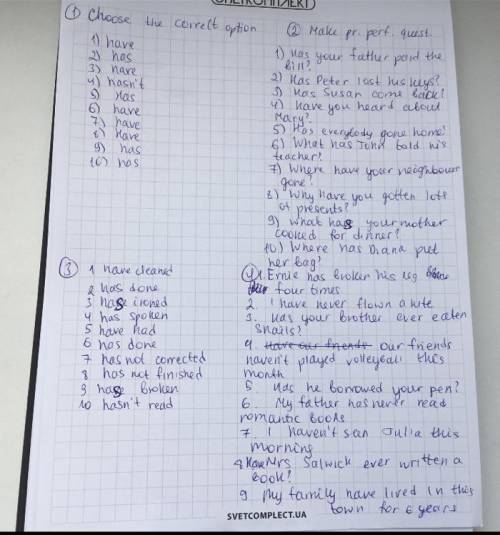 ① Choose the correct option
1) have
2) has
3) have
4) hasn't
5) Has
6) have
7) have
8) Have
9) has
10) has
② Make pr. perf. quest.
1) Has your father paid the
bill?
2) Has Peter lost his keys?
3) Has Susan come back?
4) Have you heard about
Mary?
5) Has everybody gone home?
6) What has John told his
teacher?
7) Where have your neighbour
gone?
8) Why have you gotten lots
of presents?
9) What has your mother
cooked for dinner?
10) Where has Diana put
her bag?
③ 1 have cleaned
2 has done
3 has ironed
4 has spoken
5 have had
6 has done
7 has not corrected
8 has not finished
9 has broken
10 hasn't read
④ 1. Ernie has broken his leg
four times
2. I have never flown a kite
3. Has your brother ever eaten
snails?
4. Have our friends our friends
haven't played volleyball this
month
5. Has he borrowed your pen?
6. My father has never read
romantic books
7. I haven't san Julia this
morning
8 Have Mrs Salwick ever written a
book?
9 My family have lived in this
town for 6 years
SVETCOMPLECT.UA